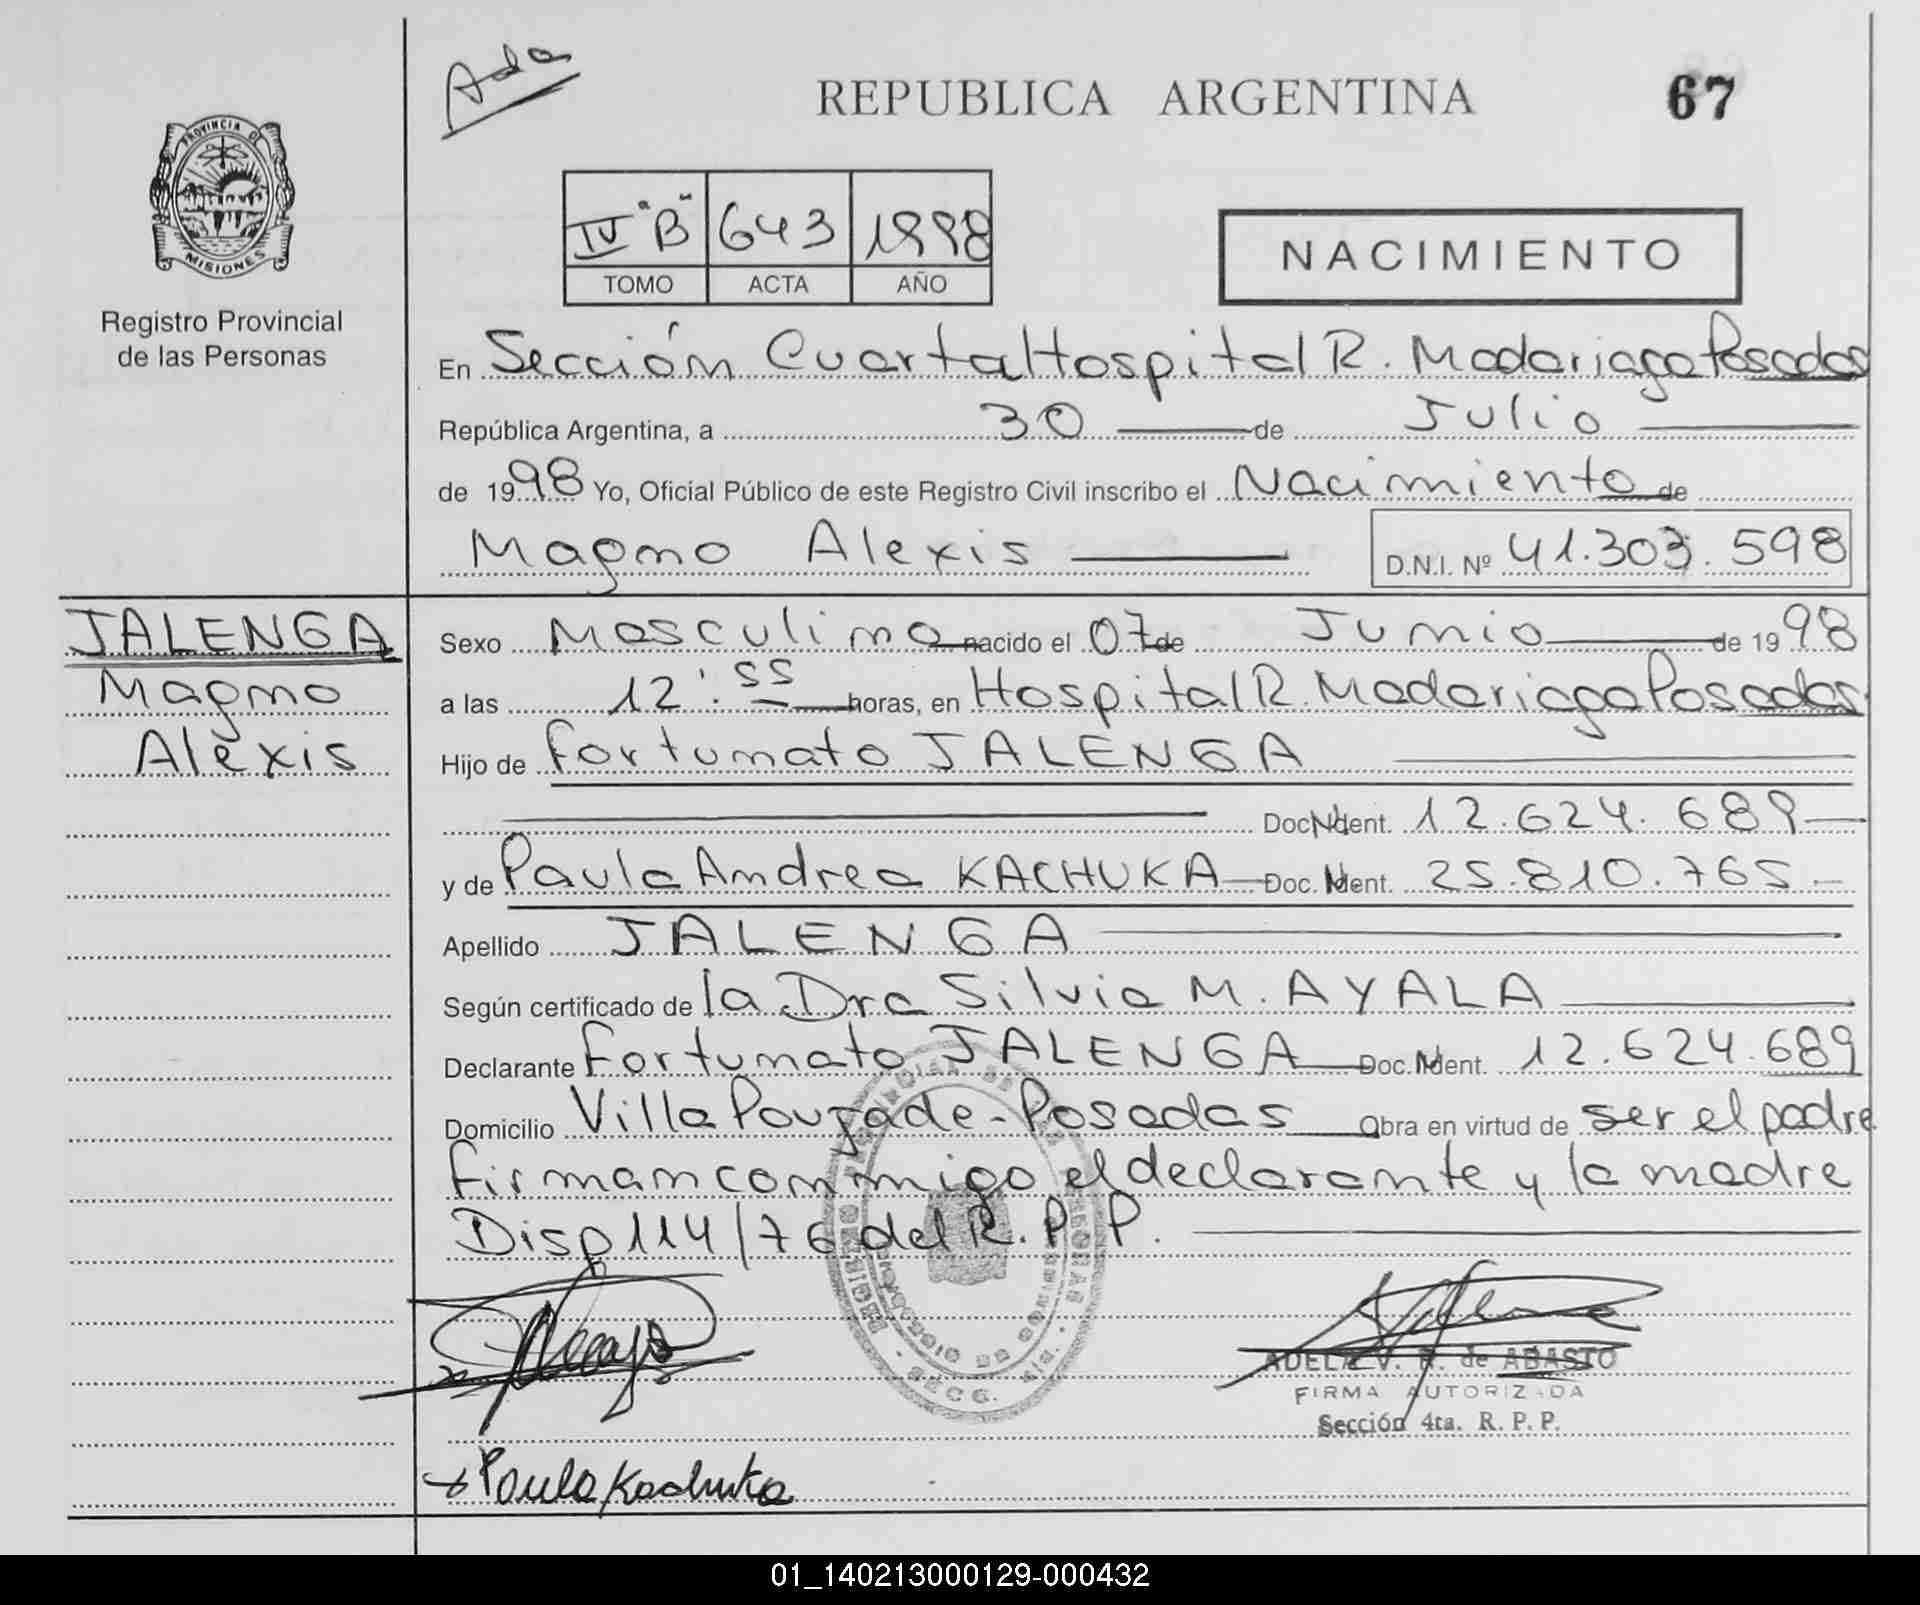 Ada
REPUBLICA ARGENTINA
67
PROVINCIA DE
MISIONES
Registro Provincial
de las Personas
IV "B" 643 1998
TOMO ACTA AÑO
NACIMIENTO
En Sección Cuarta Hospital R. Madariaga Posadas
República Argentina, a 30 de Julio
de 1998 Yo, Oficial Público de este Registro Civil inscribo el Nacimiento de
Magno Alexis D.N.I. Nº 41.303.598
JALENGA
Magno
Alexis
Sexo Masculino nacido el 07 de Junio de 1998
a las 12:55 horas, en Hospital R. Madariaga Posadas
Hijo de Fortunato JALENGA
Doc. Ident. 12.624.689
y de Paula Andrea KACHUKA Doc. Ident. 25.810.765
Apellido JALENGA
Según certificado de la Dra Silvia M. AYALA
Declarante Fortunato JALENGA Doc. Ident. 12.624.689
Domicilio Villa Pouzade - Posadas Obra en virtud de ser el padre
firman conmigo el declarante y la madre
Disp 114/76 del R.P.P.
ADELA V. R. de ABASTO
FIRMA AUTORIZADA
Sección 4ta. R. P. P.
Paula Kachuka
01_140213000129-000432